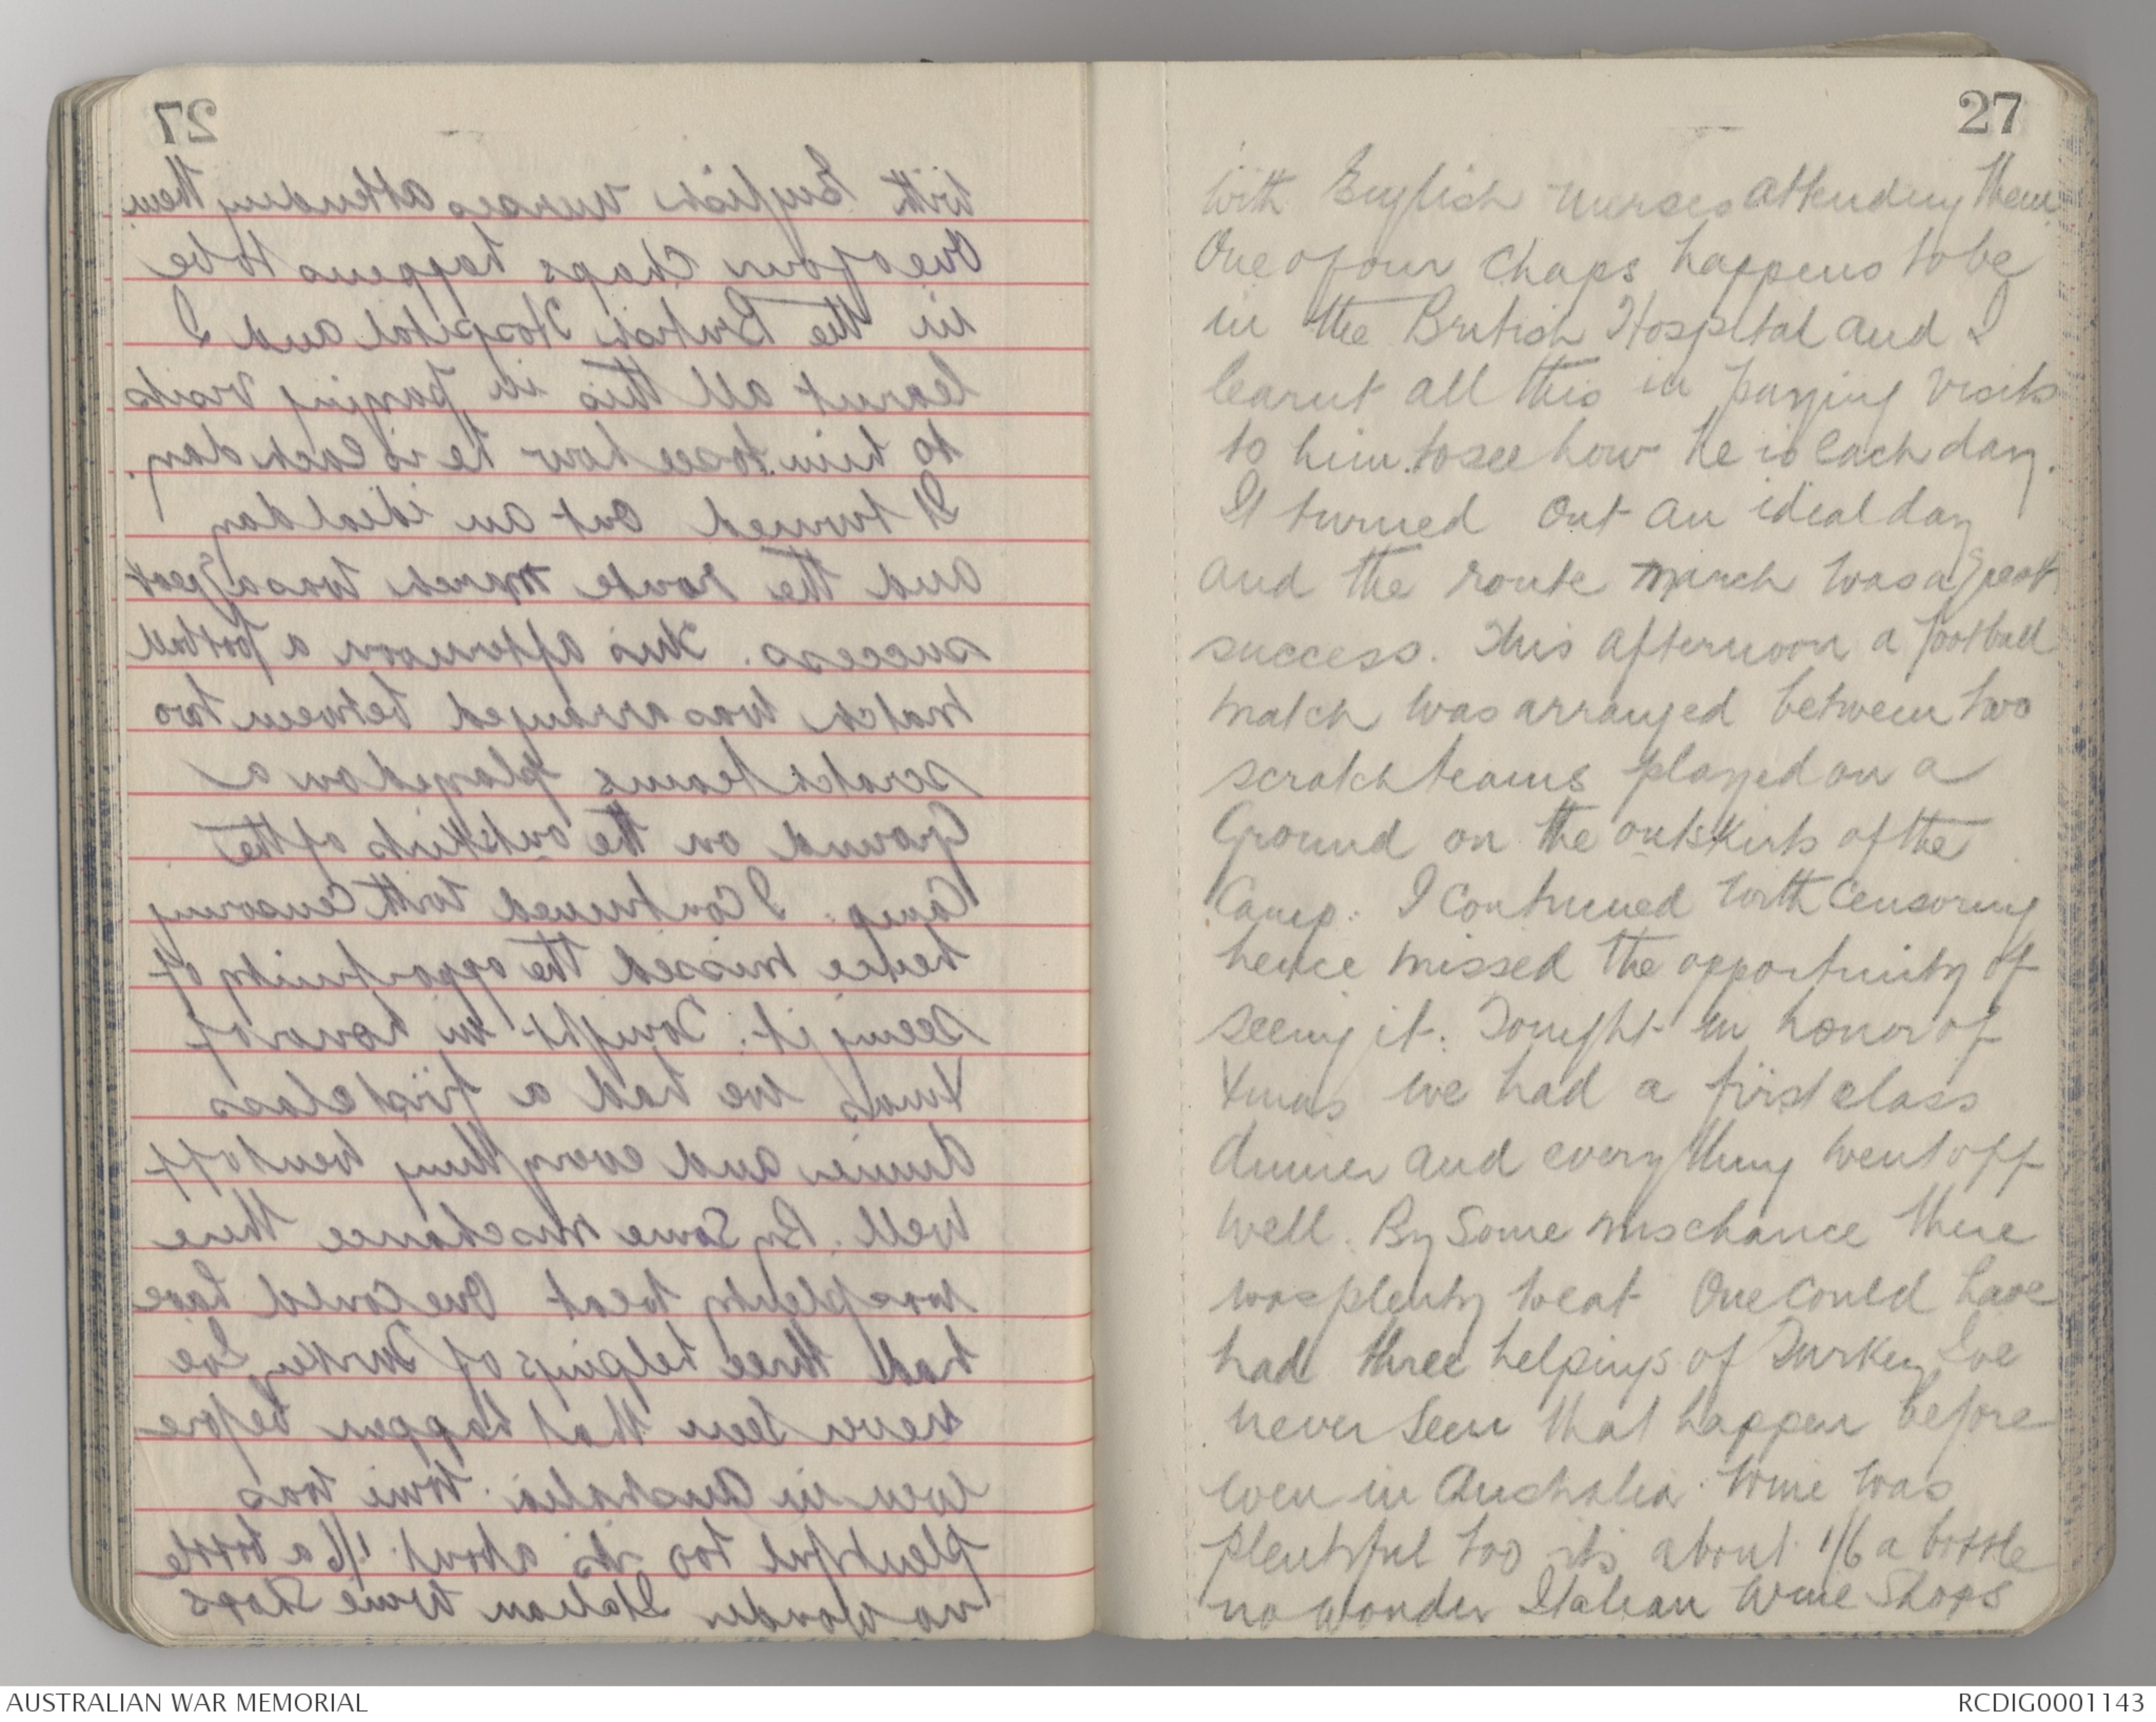 27
with English nurses attending them
One of our Chaps happens to be
in the British Hospital and I
learnt all this in paying visits
to him to see how he is each day.
It turned out an ideal day
and the route march was a great
success. This afternoon a football
match was arranged between two
scratch teams played on a
Ground on the outskirts of the
Camp. I continued with Censoring
hence missed the opportunity of
seeing it. Tonight in honor of
Xmas we had a first class
dinner and everything went off
well. By Some mischance there
was plenty to eat One could have
had three helpings of Turkey Ive
never seen that happen before
even in Australia. Wine was
plentiful too its about 1/6 a bottle
no wonder Italian Wine Shops
AUSTRALIAN WAR MEMORIAL
RCDIG0001143